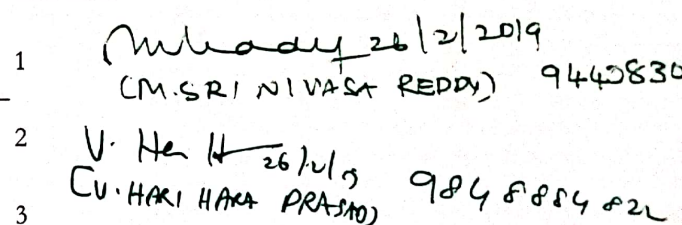 1 26/2/2019
(M. SRINIVASA REDDY) 9440830
2 V. Ha H 26/2/19
(V. HARI HARA PRASAD) 9848884822
3